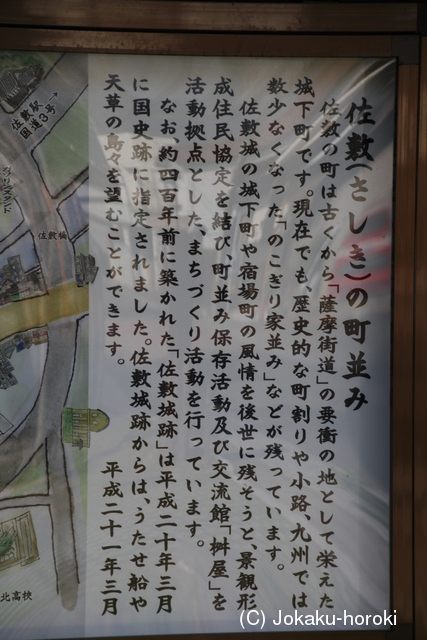 佐敷(さしき)の町並み
佐敷の町は古くから「薩摩街道」の要衝の地として栄えた
城下町です。現在でも、歴史的な町割りや小路、九州では
数少なくなった「のこぎり家並み」などが残っています。
佐敷城の城下町や宿場町の風情を後世に残そうと、景観形
成住民協定を結び、町並み保存活動及び交流館「桝屋」を
活動拠点とした、まちづくり活動を行っています。
なお、約四百年前に築かれた「佐敷城跡」は平成二十年三月
に国史跡に指定されました。佐敷城跡からは、うたせ船や
天草の島々を望むことができます。
平成二十一年三月
佐敷駅
国道3号
佐敷橋
北高校
(C) Jokaku-horoki